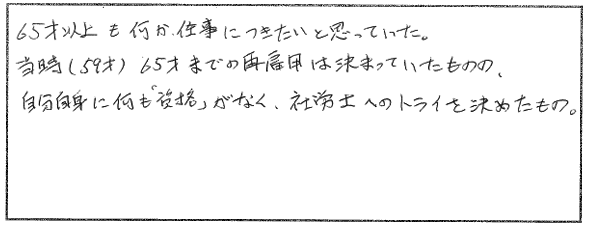 65才以上も何か仕事につきたいと思っていた。
当時(59才)65才までの再雇用は決まっていたものの、
自分自身に何も「資格」がなく、社労士へのトライを決めたもの。